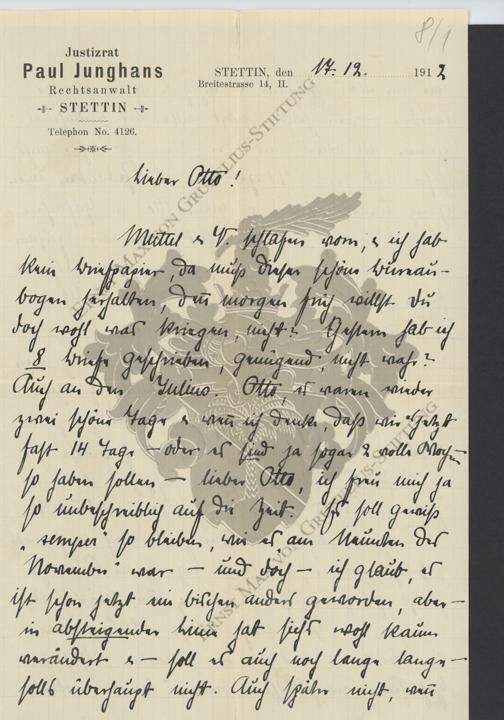 8/1
Justizrat
Paul Junghans
Rechtsanwalt
STETTIN
Telephon No. 4126.
STETTIN, den 17. 12. 1912
Breitestrasse 14, II.
Lieber Otto!
Muttel & V. schlafen vorn, & ich hab
kein Briefpapier, da muß dieser schöne Bureau-
bogen herhalten, denn morgen früh willst Du
doch wohl was kriegen, nicht? Gestern hab ich
8 Briefe geschrieben, genügend, nicht wahr?
Auch an den Julius. Otto, es waren wieder
zwei schöne Tage & wenn ich denke, daß wir's jetzt
fast 14 Tage – oder es sind ja sogar 2 volle Woch-
so haben sollen – lieber Otto, ich freu mich ja
so unbeschreiblich auf die Zeit. Es soll gewiß
"semper" so bleiben, wie es am Neunten des
November war – und doch – ich glaub, es
ist schon jetzt ein bischen anders geworden, aber –
in absteigender Linie hat sich's wohl kaum
verändert & – soll es auch noch lange lange –
solls überhaupt nicht. Auch später nicht, wenn
ERNST MAX VON GRUNELIUS-STIFTUNG
ERNST MAX VON GRUNELIUS-STIFTUNG